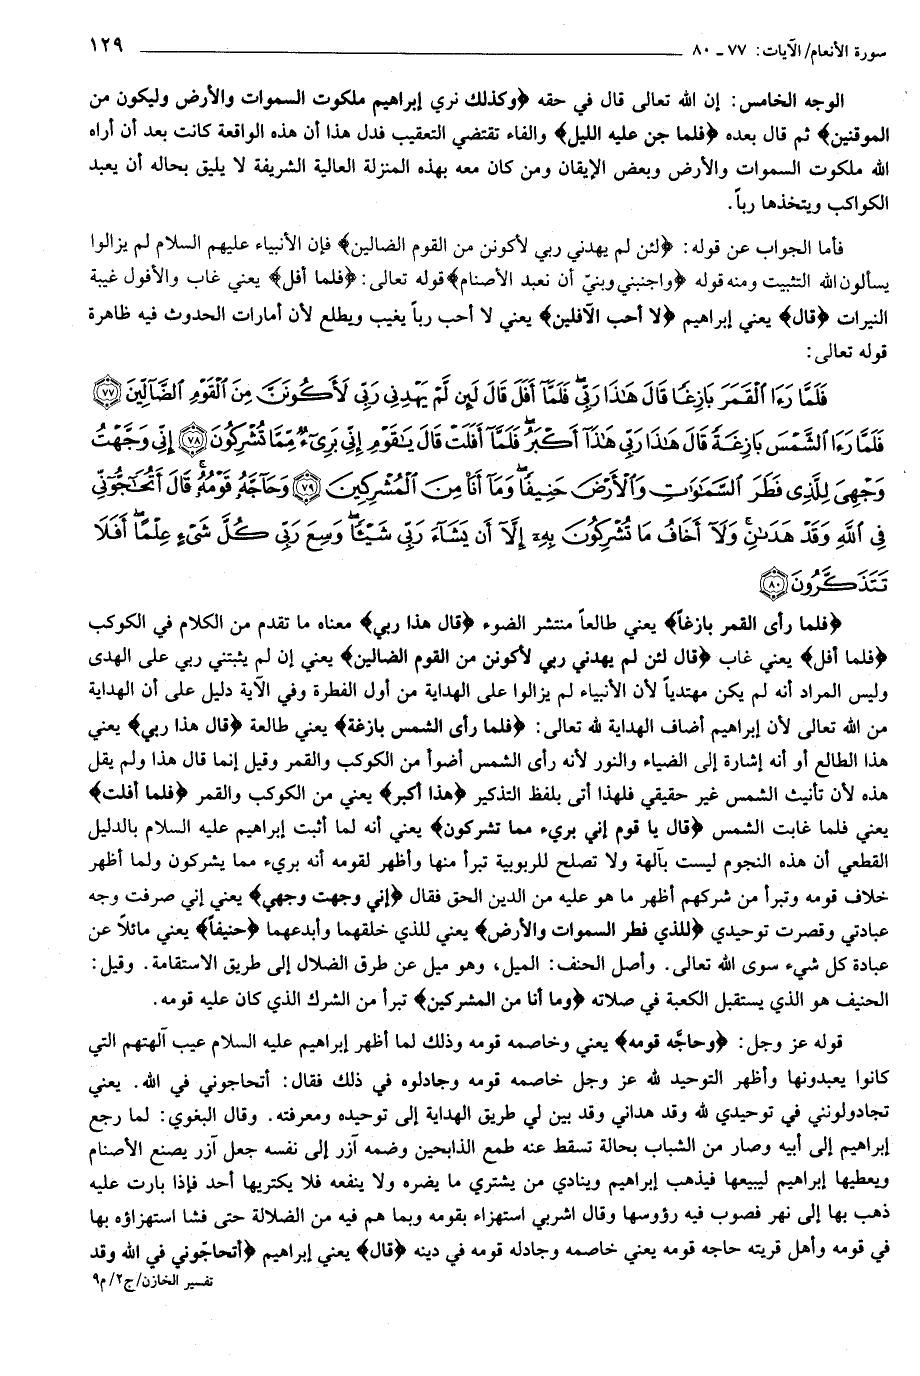 سورة الأنعام/ الآيات: ٧٧ ـ ٨٠ ١٢٩
الوجه الخامس: إن الله تعالى قال في حقه ﴿وكذلك نري إبراهيم ملكوت السموات والأرض وليكون من
الموقنين﴾ ثم قال بعده ﴿فلما جن عليه الليل﴾ والفاء تقتضي التعقيب فدل هذا أن هذه الواقعة كانت بعد أن أراه
الله ملكوت السموات والأرض وبعض الإيقان ومن كان معه بهذه المنزلة العالية الشريفة لا يليق بحاله أن يعبد
الكواكب ويتخذها رباً.
فأما الجواب عن قوله: ﴿لئن لم يهدني ربي لأكونن من القوم الضالين﴾ فإن الأنبياء عليهم السلام لم يزالوا
يسألون الله التثبيت ومنه قوله ﴿واجنبني وبنيّ أن نعبد الأصنام﴾ قوله تعالى: ﴿فلما أفل﴾ يعني غاب والأفول غيبة
النيرات ﴿قال﴾ يعني إبراهيم ﴿لا أحب الآفلين﴾ يعني لا أحب رباً يغيب ويطلع لأن أمارات الحدوث فيه ظاهرة
قوله تعالى:
فَلَمَّا رَءَا الْقَمَرَ بَازِغًا قَالَ هَٰذَا رَبِّي فَلَمَّا أَفَلَ قَالَ لَئِن لَّمْ يَهْدِنِي رَبِّي لَأَكُونَنَّ مِنَ الْقَوْمِ الضَّالِّينَ ﴿٧٧﴾
فَلَمَّا رَءَا الشَّمْسَ بَازِغَةً قَالَ هَٰذَا رَبِّي هَٰذَا أَكْبَرُ فَلَمَّا أَفَلَتْ قَالَ يَٰقَوْمِ إِنِّي بَرِيءٌ مِّمَّا تُشْرِكُونَ ﴿٧٨﴾ إِنِّي وَجَّهْتُ
وَجْهِيَ لِلَّذِي فَطَرَ السَّمَٰوَٰتِ وَالْأَرْضَ حَنِيفًا وَمَا أَنَا مِنَ الْمُشْرِكِينَ ﴿٧٩﴾ وَحَاجَّهُ قَوْمُهُ قَالَ أَتُحَٰجُّونِّي
فِي اللَّهِ وَقَدْ هَدَىٰنِ وَلَا أَخَافُ مَا تُشْرِكُونَ بِهِ إِلَّا أَن يَشَاءَ رَبِّي شَيْئًا وَسِعَ رَبِّي كُلَّ شَيْءٍ عِلْمًا أَفَلَا
تَتَذَكَّرُونَ ﴿٨٠﴾
﴿فلما رأى القمر بازغاً﴾ يعني طالعاً منتشر الضوء ﴿قال هذا ربي﴾ معناه ما تقدم من الكلام في الكوكب
﴿فلما أفل﴾ يعني غاب ﴿قال لئن لم يهدني ربي لأكونن من القوم الضالين﴾ يعني إن لم يثبتني ربي على الهدى
وليس المراد أنه لم يكن مهتدياً لأن الأنبياء لم يزالوا على الهداية من أول الفطرة وفي الآية دليل على أن الهداية
من الله تعالى لأن إبراهيم أضاف الهداية لله تعالى: ﴿فلما رأى الشمس بازغة﴾ يعني طالعة ﴿قال هذا ربي﴾ يعني
هذا الطالع أو أنه إشارة إلى الضياء والنور لأنه رأى الشمس أضوأ من الكوكب والقمر وقيل إنما قال هذا ولم يقل
هذه لأن تأنيث الشمس غير حقيقي فلهذا أتى بلفظ التذكير ﴿هذا أكبر﴾ يعني من الكوكب والقمر ﴿فلما أفلت﴾
يعني فلما غابت الشمس ﴿قال يا قوم إني بريء مما تشركون﴾ يعني أنه لما أثبت إبراهيم عليه السلام بالدليل
القطعي أن هذه النجوم ليست بآلهة ولا تصلح للربوبية تبرأ منها وأظهر لقومه أنه بريء مما يشركون ولما أظهر
خلاف قومه وتبرأ من شركهم أظهر ما هو عليه من الدين الحق فقال ﴿إني وجهت وجهي﴾ يعني إني صرفت وجه
عبادتي وقصرت توحيدي ﴿للذي فطر السموات والأرض﴾ يعني للذي خلقهما وأبدعهما ﴿حنيفاً﴾ يعني مائلاً عن
عبادة كل شيء سوى الله تعالى. وأصل الحنف: الميل، وهو ميل عن طرق الضلال إلى طريق الاستقامة. وقيل:
الحنيف هو الذي يستقبل الكعبة في صلاته ﴿وما أنا من المشركين﴾ تبرأ من الشرك الذي كان عليه قومه.
قوله عز وجل: ﴿وحاجَّه قومه﴾ يعني وخاصمه قومه وذلك لما أظهر إبراهيم عليه السلام عيب آلهتهم التي
كانوا يعبدونها وأظهر التوحيد لله عز وجل خاصمه قومه وجادلوه في ذلك فقال: أتحاجوني في الله. يعني
تجادلونني في توحيدي لله وقد هداني وقد بين لي طريق الهداية إلى توحيده ومعرفته. وقال البغوي: لما رجع
إبراهيم إلى أبيه وصار من الشباب بحالة تسقط عنه طمع الذابحين وضمه آزر إلى نفسه جعل آزر يصنع الأصنام
ويعطيها إبراهيم ليبيعها فيذهب إبراهيم وينادي من يشتري ما يضره ولا ينفعه فلا يكتريها أحد فإذا بارت عليه
ذهب بها إلى نهر فصوب فيه رؤوسها وقال اشربي استهزاء بقومه وبما هم فيه من الضلالة حتى فشا استهزاؤه بها
في قومه وأهل قريته حاجه قومه يعني خاصمه وجادله قومه في دينه ﴿قال﴾ يعني إبراهيم ﴿أتحاجّوني في الله وقد
تفسير الخازن/ج٢/م٩